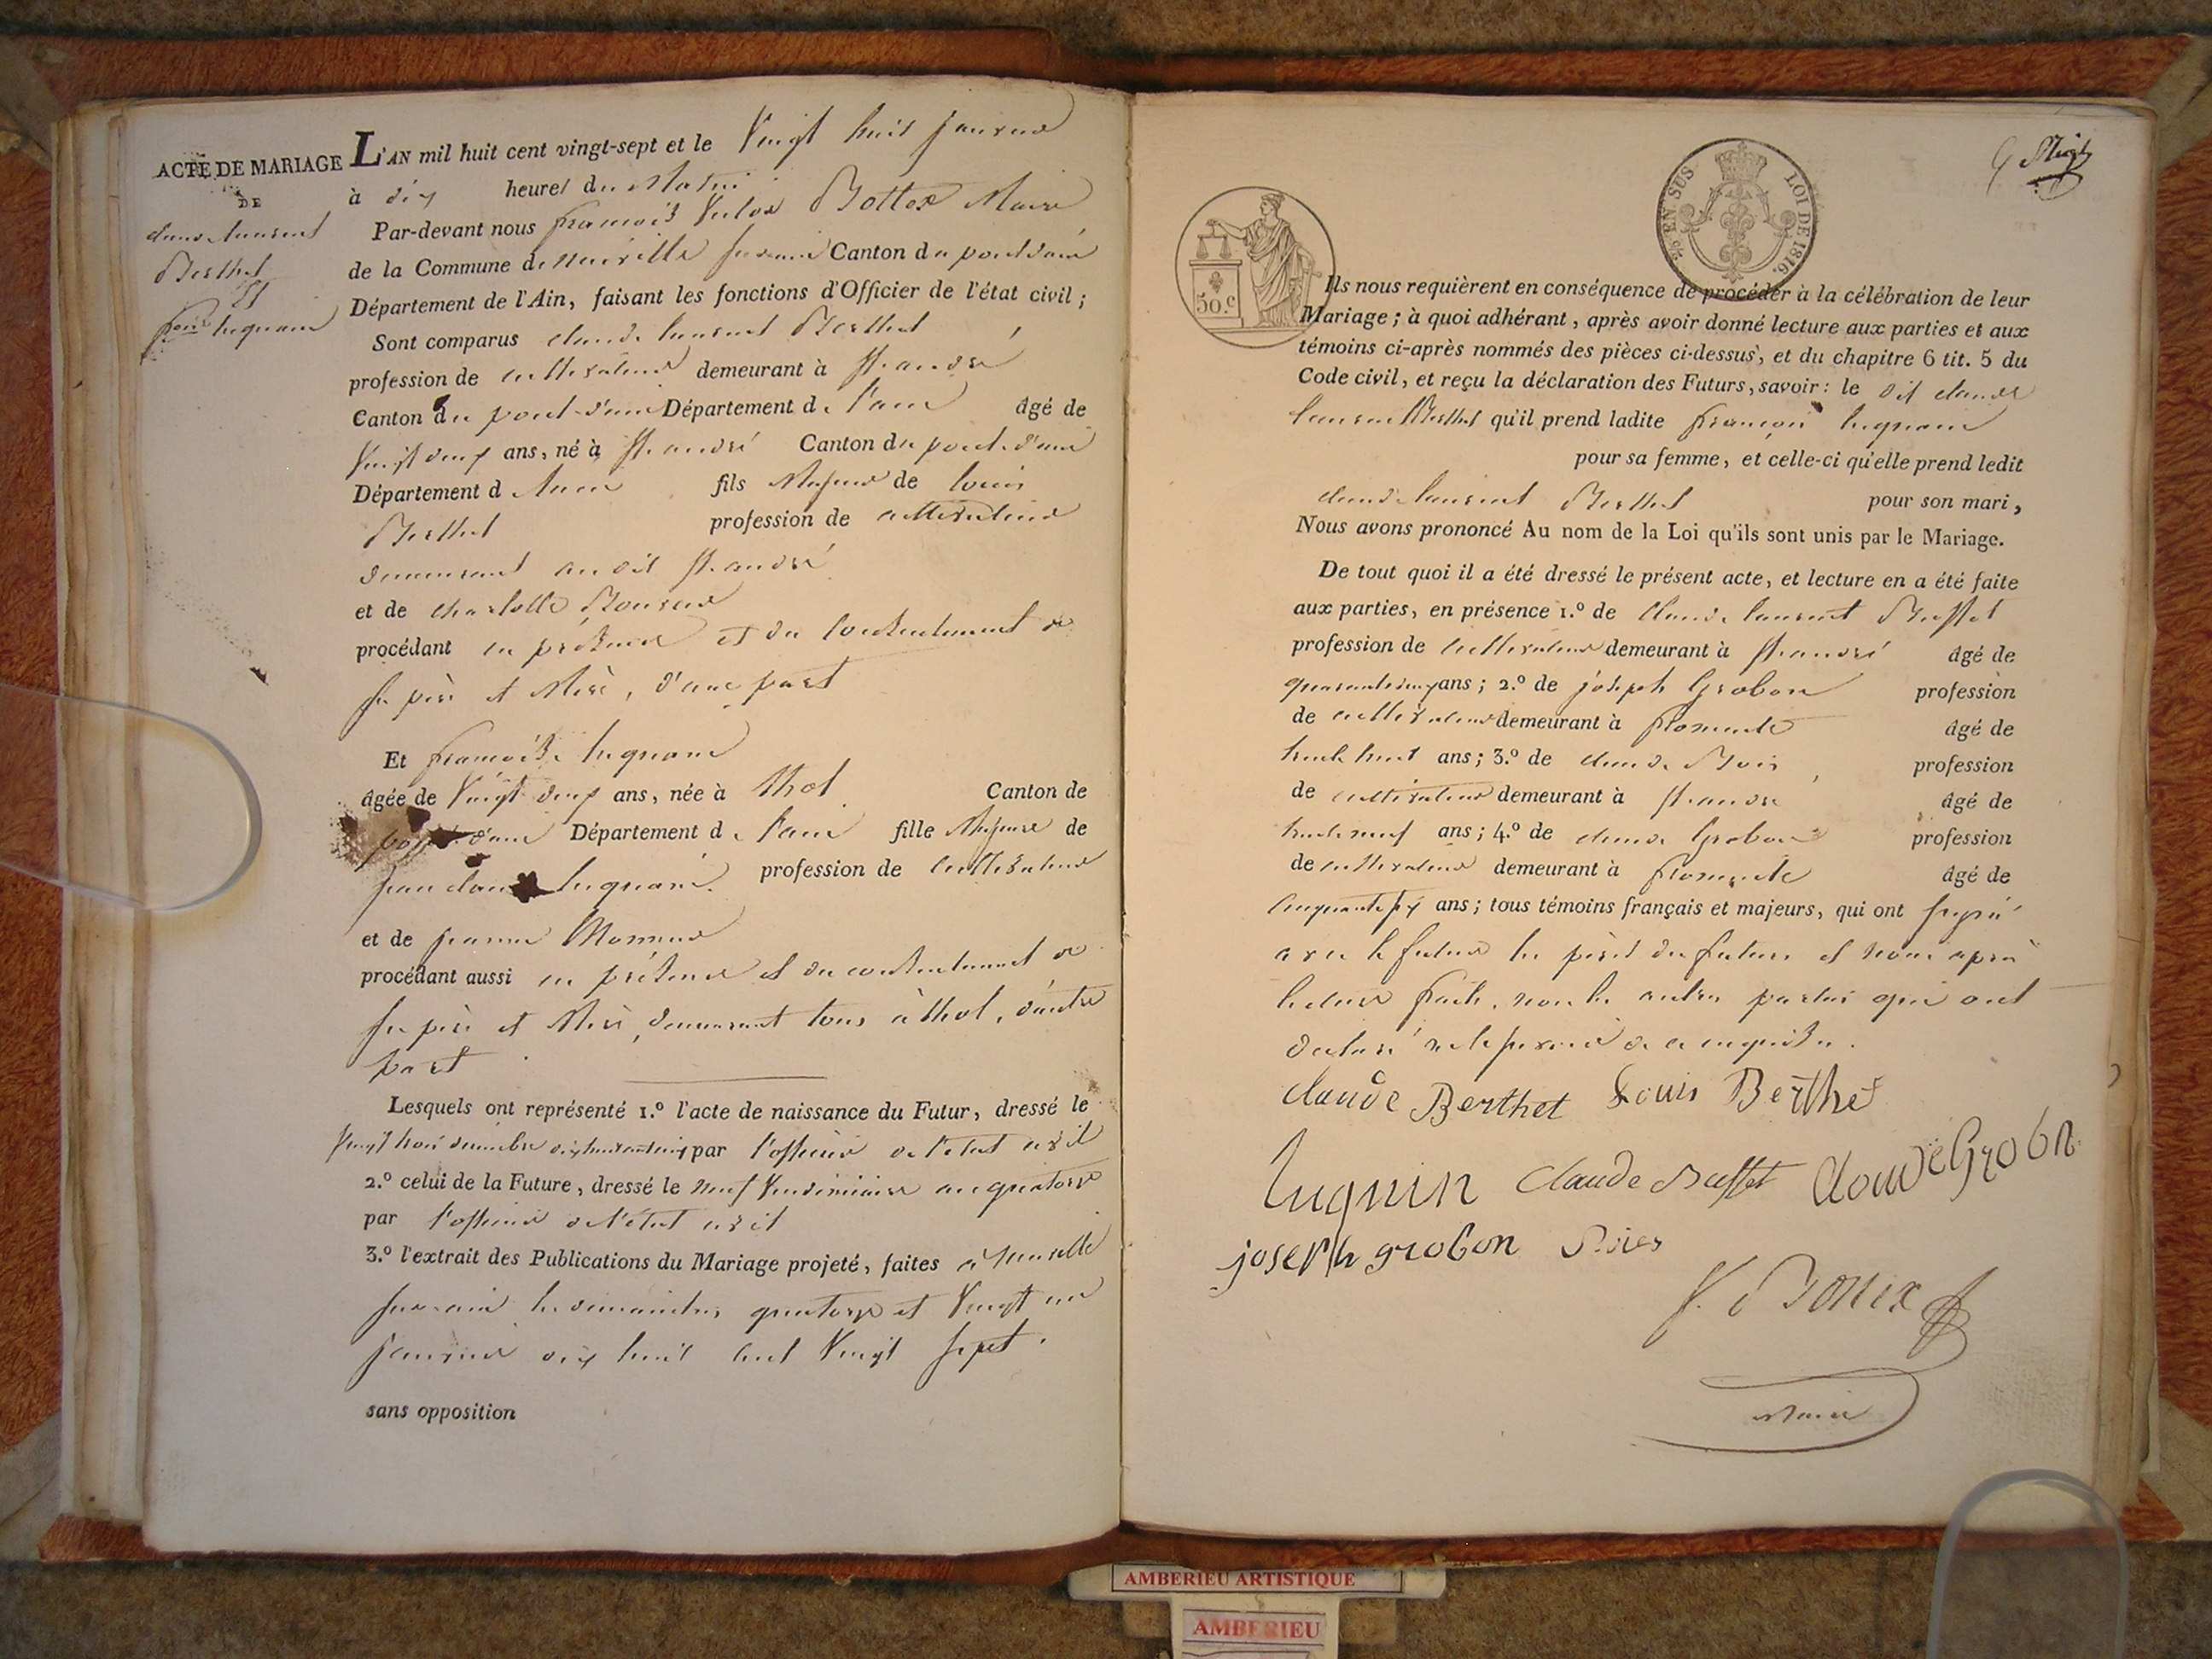 ACTE DE MARIAGE
DE
claude laurent
Berthet
Et
fçoise luquin
L'AN mil huit cent vingt-sept et le Vingt huit janvier
à dix heures du Matin
Par-devant nous françois Bottex Maire
de la Commune de neuville sur ain Canton du pont d'ain
Département de l'Ain, faisant les fonctions d'Officier de l'état civil ;
Sont comparus claude laurent Berthet
profession de cultivateur demeurant à St. andré
Canton du pont d'ain Département de l'ain âgé de
Vingt deux ans, né à St. andré Canton du pont d'ain
Département d l'ain fils Majeur de louis
Berthet profession de cultivateur
demeurant au dit St. andré
et de charlotte
procédant en présence et du consentement de
ses père et Mère, d'une part
Et françoise luquin
âgée de Vingt deux ans, née à thol Canton de
pont d'ain Département de l'ain fille Majeure de
jean claude luquin profession de cultivateur
et de jeanne
procédant aussi en présence et du consentement de
ses père et Mère, demeurant tous à thol, d'autre
part
Lesquels ont représenté 1.º l'acte de naissance du Futur, dressé le
par l'officier de l'état civil
2.º celui de la Future, dressé le neuf Vendémiaire an quatorze
par l'officier de l'état civil
3.º l'extrait des Publications du Mariage projeté, faites à neuville
sur ain les dimanches quatorze et Vingt un
janvier dix huit cent Vingt sept.
sans opposition
EN SUS
LOI DE 1816.
50.c
Ils nous requièrent en conséquence de procéder à la célébration de leur
Mariage ; à quoi adhérant, après avoir donné lecture aux parties et aux
témoins ci-après nommés des pièces ci-dessus, et du chapitre 6 tit. 5 du
Code civil, et reçu la déclaration des Futurs, savoir : le dit claude
laurent Berthet qu'il prend ladite françoise luquin
pour sa femme, et celle-ci qu'elle prend ledit
claude laurent Berthet pour son mari,
Nous avons prononcé Au nom de la Loi qu'ils sont unis par le Mariage.
De tout quoi il a été dressé le présent acte, et lecture en a été faite
aux parties, en présence 1.º de Claude laurent Buffet
profession de cultivateur demeurant à St. andré âgé de
ans ; 2.º de joseph Grobon profession
de cultivateur demeurant à âgé de
trente huit ans ; 3.º de claude profession
de cultivateur demeurant à St. andré âgé de
trente neuf ans ; 4.º de claude Grobon profession
de cultivateur demeurant à âgé de
cinquante six ans ; tous témoins français et majeurs, qui ont signé
avec le futur les pères des futurs et nous après
lecture faite, non les autres parties qui ont
déclaré ne le savoir de ce enquises.
claude Berthet Louis Berthet
Luquin Claude Buffet
joseph grobon
Bottex
Maire
AMBERIEU ARTISTIQUE
AMBERIEU